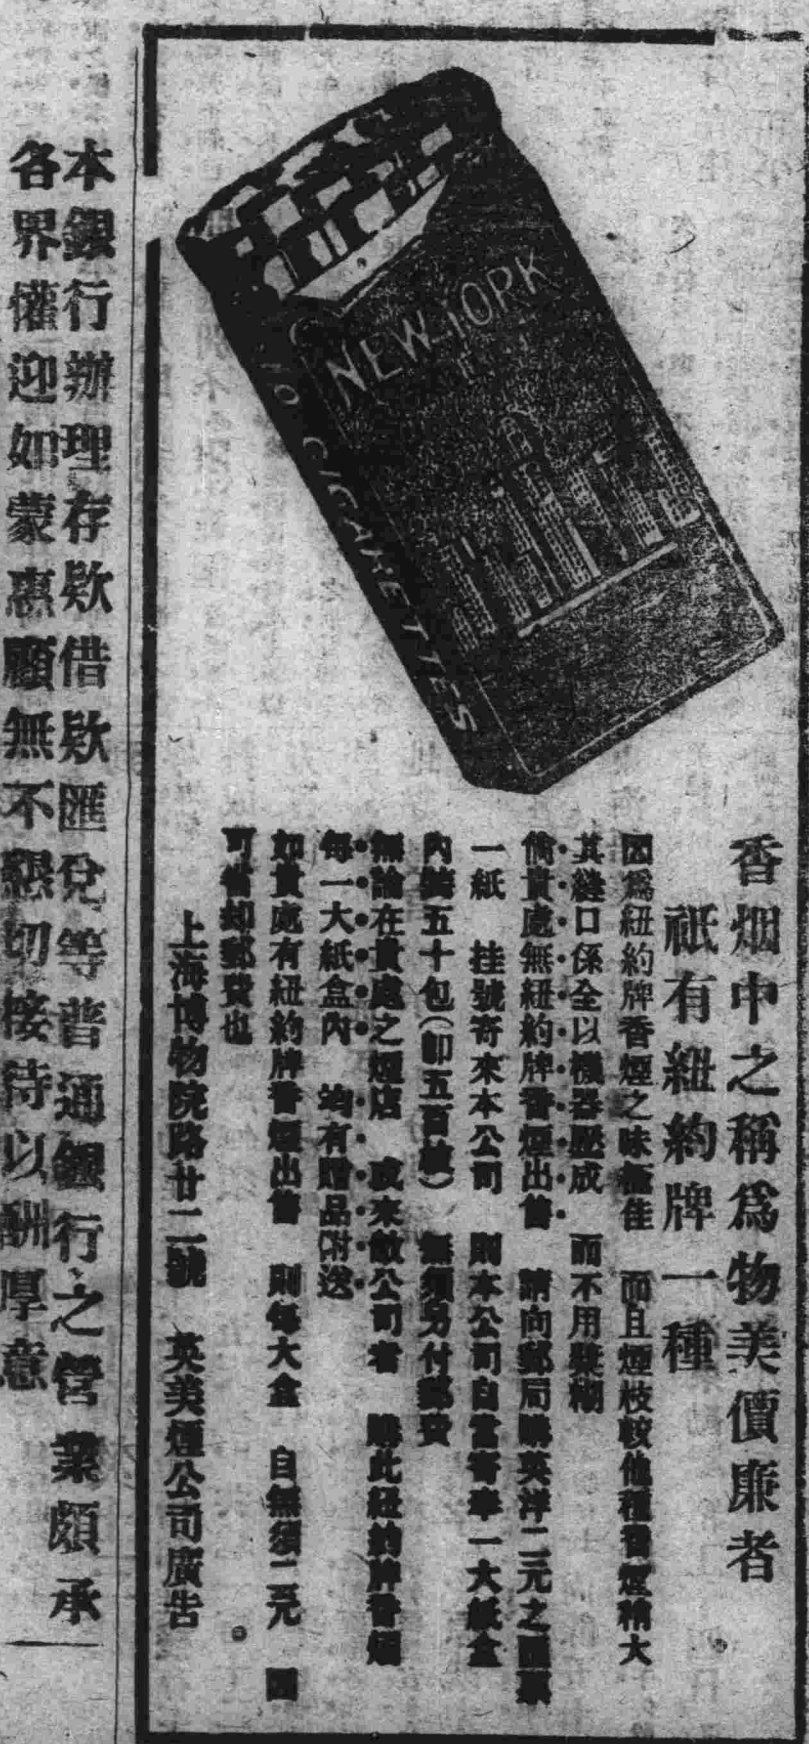 NEW-YORK
10 CIGARETTES
香烟中之稱爲物美價廉者
祗有紐約牌一種
因爲紐約牌香煙之味極佳 而且煙枝較他種香煙稍大
其縫口係全以機器壓成 而不用漿糊
倘貴處無紐約牌香煙出售 請向郵局購英洋二元之匯票
一紙 挂號寄來本公司 則本公司自當寄奉一大紙盒
內裝五十包(卽五百枝) 無須另付郵費
無論在貴處之煙店 或來敝公司者 購此紐約牌香烟
每一大紙盒內 均有贈品附送
如貴處有紐約牌香煙出售 則每大盒 自無須二元 因
可省却郵費也
上海博物院路廿二號 英美煙公司廣告
本銀行辦理存欵借欵匯兌等普通銀行之營業頗承
各界懽迎如蒙惠顧無不懇切接待以酬厚意